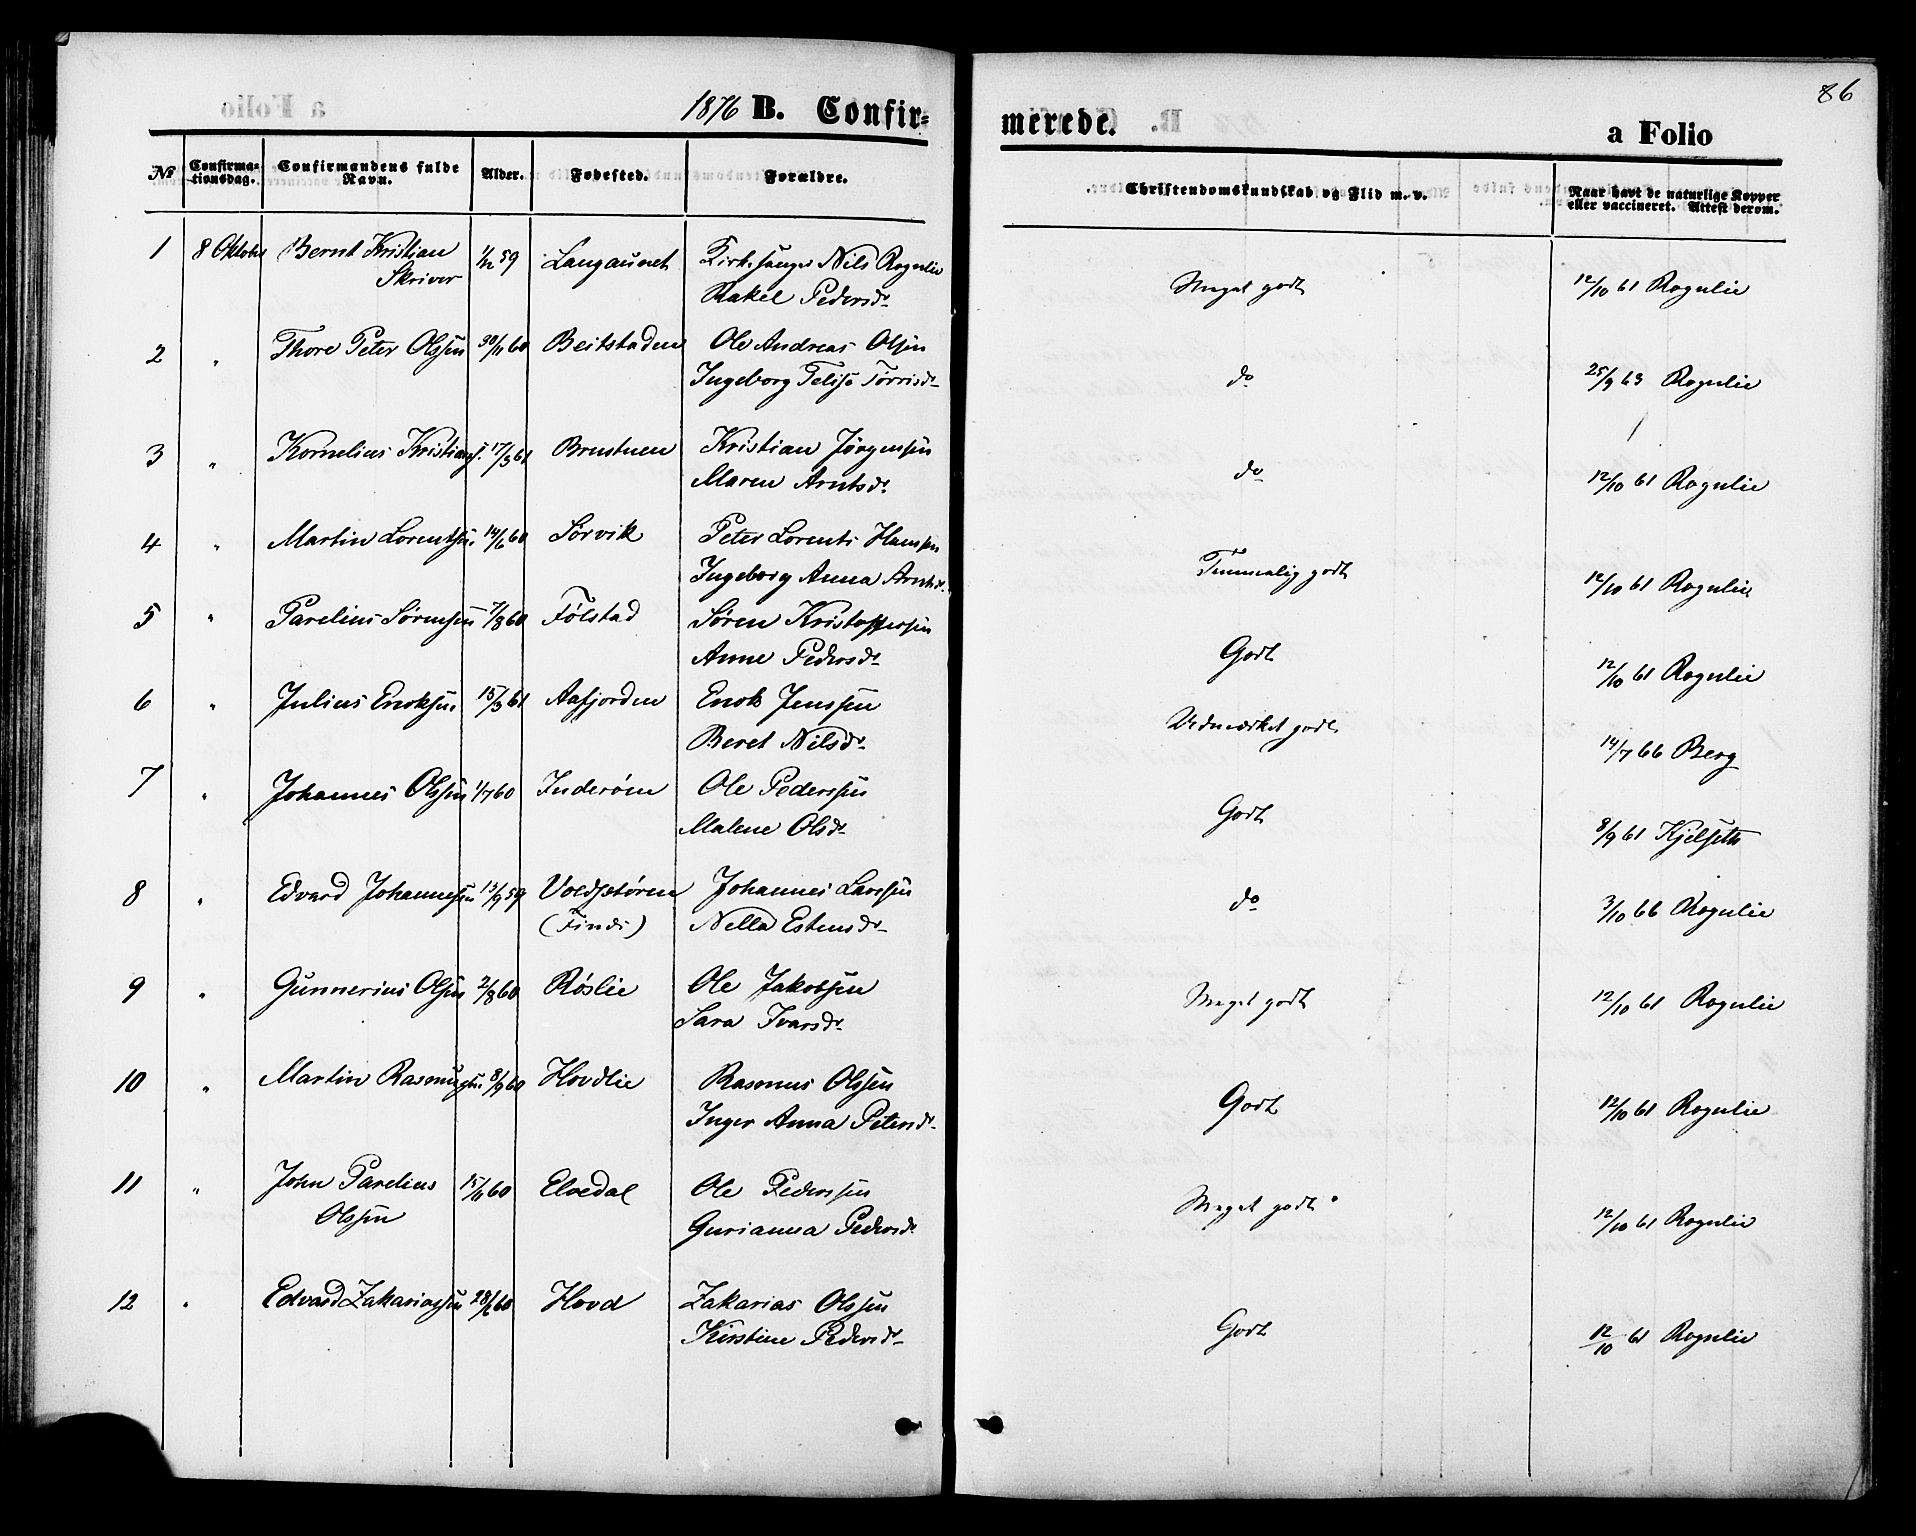 1876 B. Confir=
merede.
a Folio
86
No
Confirma=
tionsdag.
Confirmandens fulde
Navn.
Alder.
Fødested.
Forældre.
Christendomskundskab og Flid m. v.
Naar havt de naturlige Kopper
eller vaccineret. Attest derom.
1 8 Oktober Bernt Kristian 1/12 59 Langaunet Kirkesanger Nils Rogulie
Skriver Rakel Pedersdr
Meget godt 12/10 61 Rogulie
2 " Thore Peter Olssen 30/11 60 Beitstaden Ole Andreas Olsen
Ingeborg Torrisdr
do 25/9 63 Rogulie
3 " Kornelius Kristians. 17/3 61 Brustuen Kristian Jørgensen
Maren Arntsdr
do 12/10 61 Rogulie
4 " Martin Lorentsen 14/6 60 Sørvik Peter Lorents Hansen
Ingeborg Anna Arntsdr
Temmelig godt 12/10 61 Rogulie
5 " Parelius Sørensen 7/8 60 Følstad Søren Kristoffersen
Anne Pedersdr
Godt 12/10 61 Rogulie
6 " Julius Enoksen 15/3 61 Aafjorden Enok Jenssen
Beret Nilsdr
Udmærket godt 14/7 66 Berg
7 " Johannes Olssen 1/7 60 Inderøen Ole Pederssen
Malene Olsdr
Godt 8/9 61 Kjelseth
8 " Edvard Johannessen 13/9 59 Johannes Larssen
Nella Estensdr
do 3/10 66 Rogulie
9 " Gunnerius Olssen 2/8 60 Røslie Ole Jakobsen
Sara Ivarsdr
Meget godt 12/10 61 Rogulie
10 " Martin Rasmussen 8/9 60 Hovdlie Rasmus Olssen
Inger Anna Petersdr
Godt 12/10 61 Rogulie
11 " John Parelius 15/11 60 Elvedal Ole Pederssen
Olssen Gurianna Pedersdr
Meget godt 12/10 61 Rogulie
12 " Edvard Zakariassen 28/6 60 Hovd Zakarias Olssen
Kirstine Pedersdr
Godt 12/10 61 Rogulie